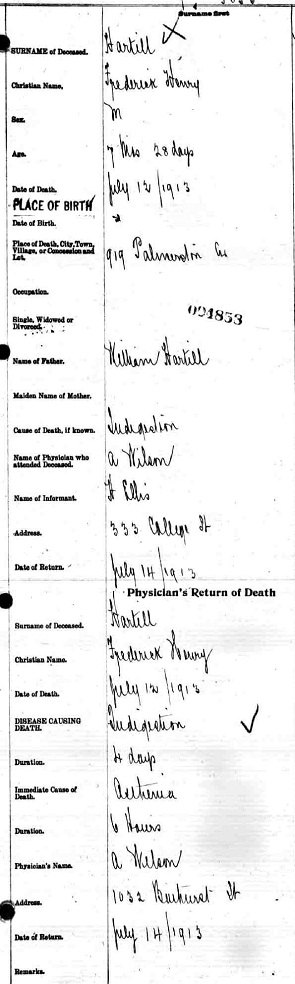 Surname first
SURNAME of Deceased. Hartill
Christian Name, Frederick Henry
Sex. M
Age. 7 Mos 28 days
Date of Death. July 12/1913
PLACE OF BIRTH
Date of Birth.
Place of Death, City, Town, 919 Palmerston Av
Village, or Concession and
Lot.
Occupation.
Single, Widowed or
Divorced.
024853
Name of Father. William Hartill
Maiden Name of Mother.
Cause of Death, if known. Indigestion
Name of Physician who A Wilson
attended Deceased.
Name of Informant. H Ellis
Address. 333 College St
Date of Return. July 14/1913
Physician's Return of Death
Surname of Deceased. Hartill
Christian Name. Frederick Henry
Date of Death. July 12/1913
DISEASE CAUSING Indigestion
DEATH.
Duration. 4 days
Immediate Cause of Asthenia
Death.
Duration. 6 Hours
Physician's Name. A Wilson
Address. 1032 Bathurst St
Date of Return. July 14/1913
Remarks.